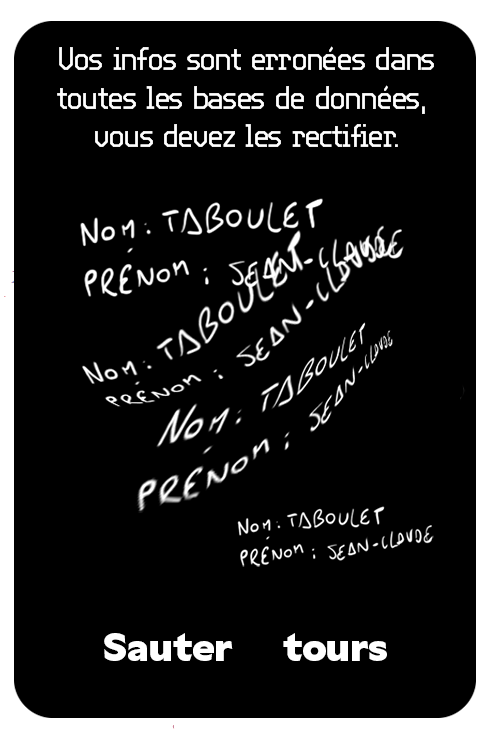 Vos infos sont erronées dans
toutes les bases de données,
vous devez les rectifier.
NOM : TABOULET
PRÉNOM : JEAN-CLAUDE
NOM : TABOULET
PRÉNOM : JEAN-CLAUDE
NOM : TABOULET
PRÉNOM : JEAN-CLAUDE
NOM : TABOULET
PRÉNOM : JEAN-CLAUDE
Sauter tours